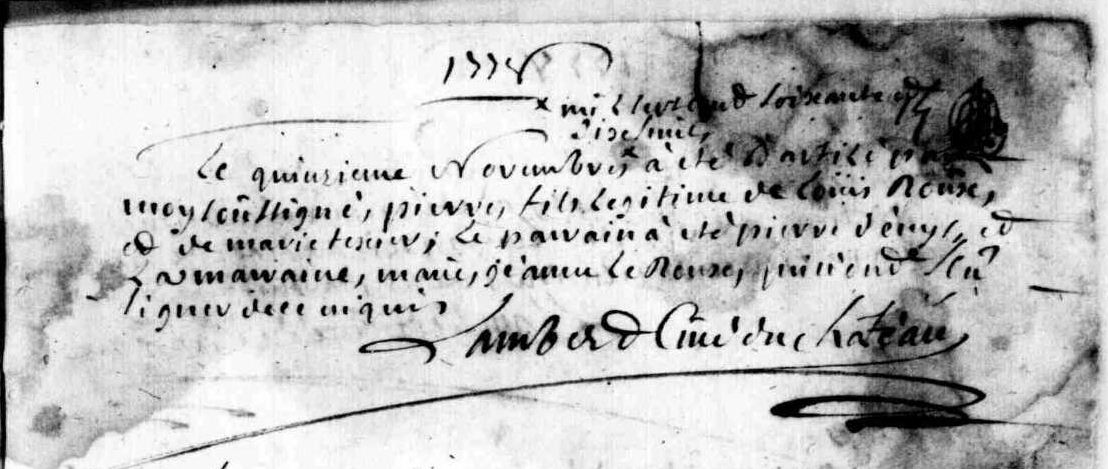 1778
x mil sept cend soixante et
dixhuit,
Le quinzieme Novembre x a été batisé par
moy soussigné, pierre, fils legitime de Loüis Rouxe,
ed de marie texier, Le parrain a été pierre dényt, ed
La marraine, marie, jéanne Le Rouxe, qui n'end sçu
signer dece enquis
Lamberd Curé du chatéau